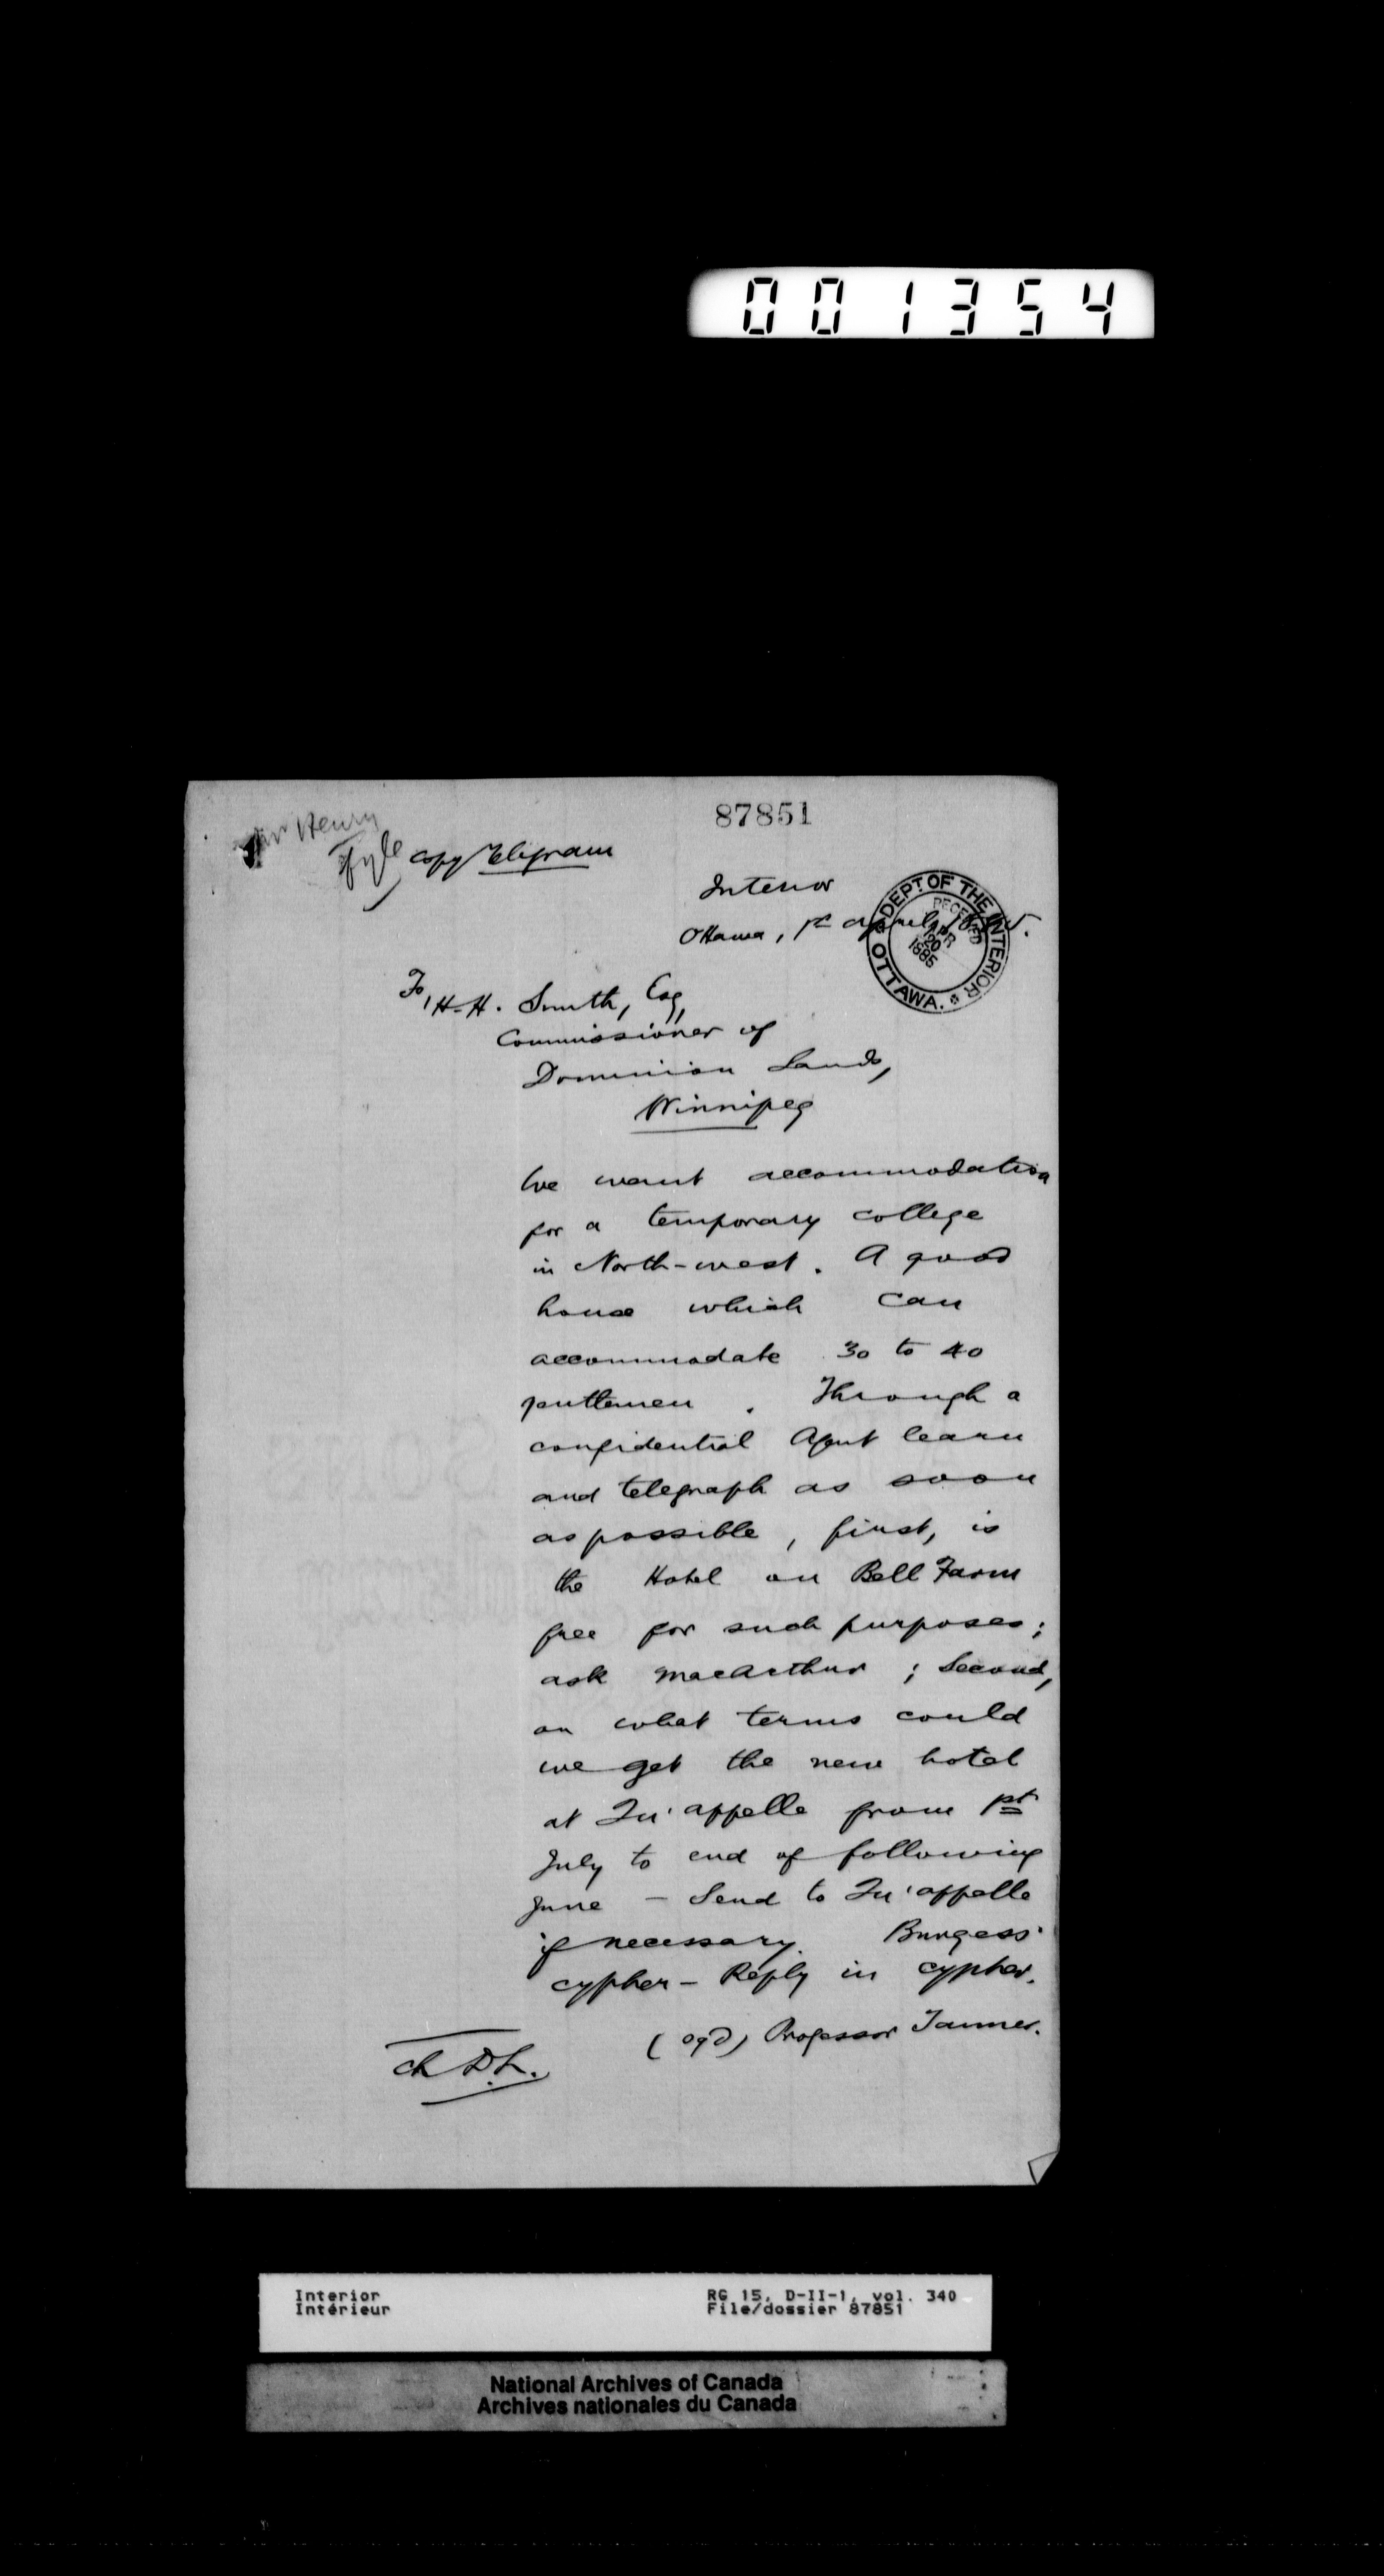 001354
87851
Mr Henry
Fyle
Copy Telegram
Interior
Ottawa, 1st April, 1885.
DEPT. OF THE INTERIOR
RECEIVED
APR
20
1885
OTTAWA.
To, H.H. Smith, Esq,
Commissioner of
Dominion Lands,
Winnipeg
We want accommodation
for a temporary college
in North-west. A good
house which can
accommodate 30 to 40
gentlemen. Through a
confidential Agent learn
and telegraph as soon
as possible, first, is
the Hotel on Bell Farm
free for such purposes;
ask MacArthur; Second,
on what terms could
we get the new hotel
at Qu'appelle from 1st
July to end of following
June – Send to Qu'appelle
if necessary. Burgess'
cypher – Reply in cypher.
(sgd) Professor Tanner.
Interior
Intérieur
RG 15, D-II-1, vol. 340
File/dossier 87851
National Archives of Canada
Archives nationales du Canada